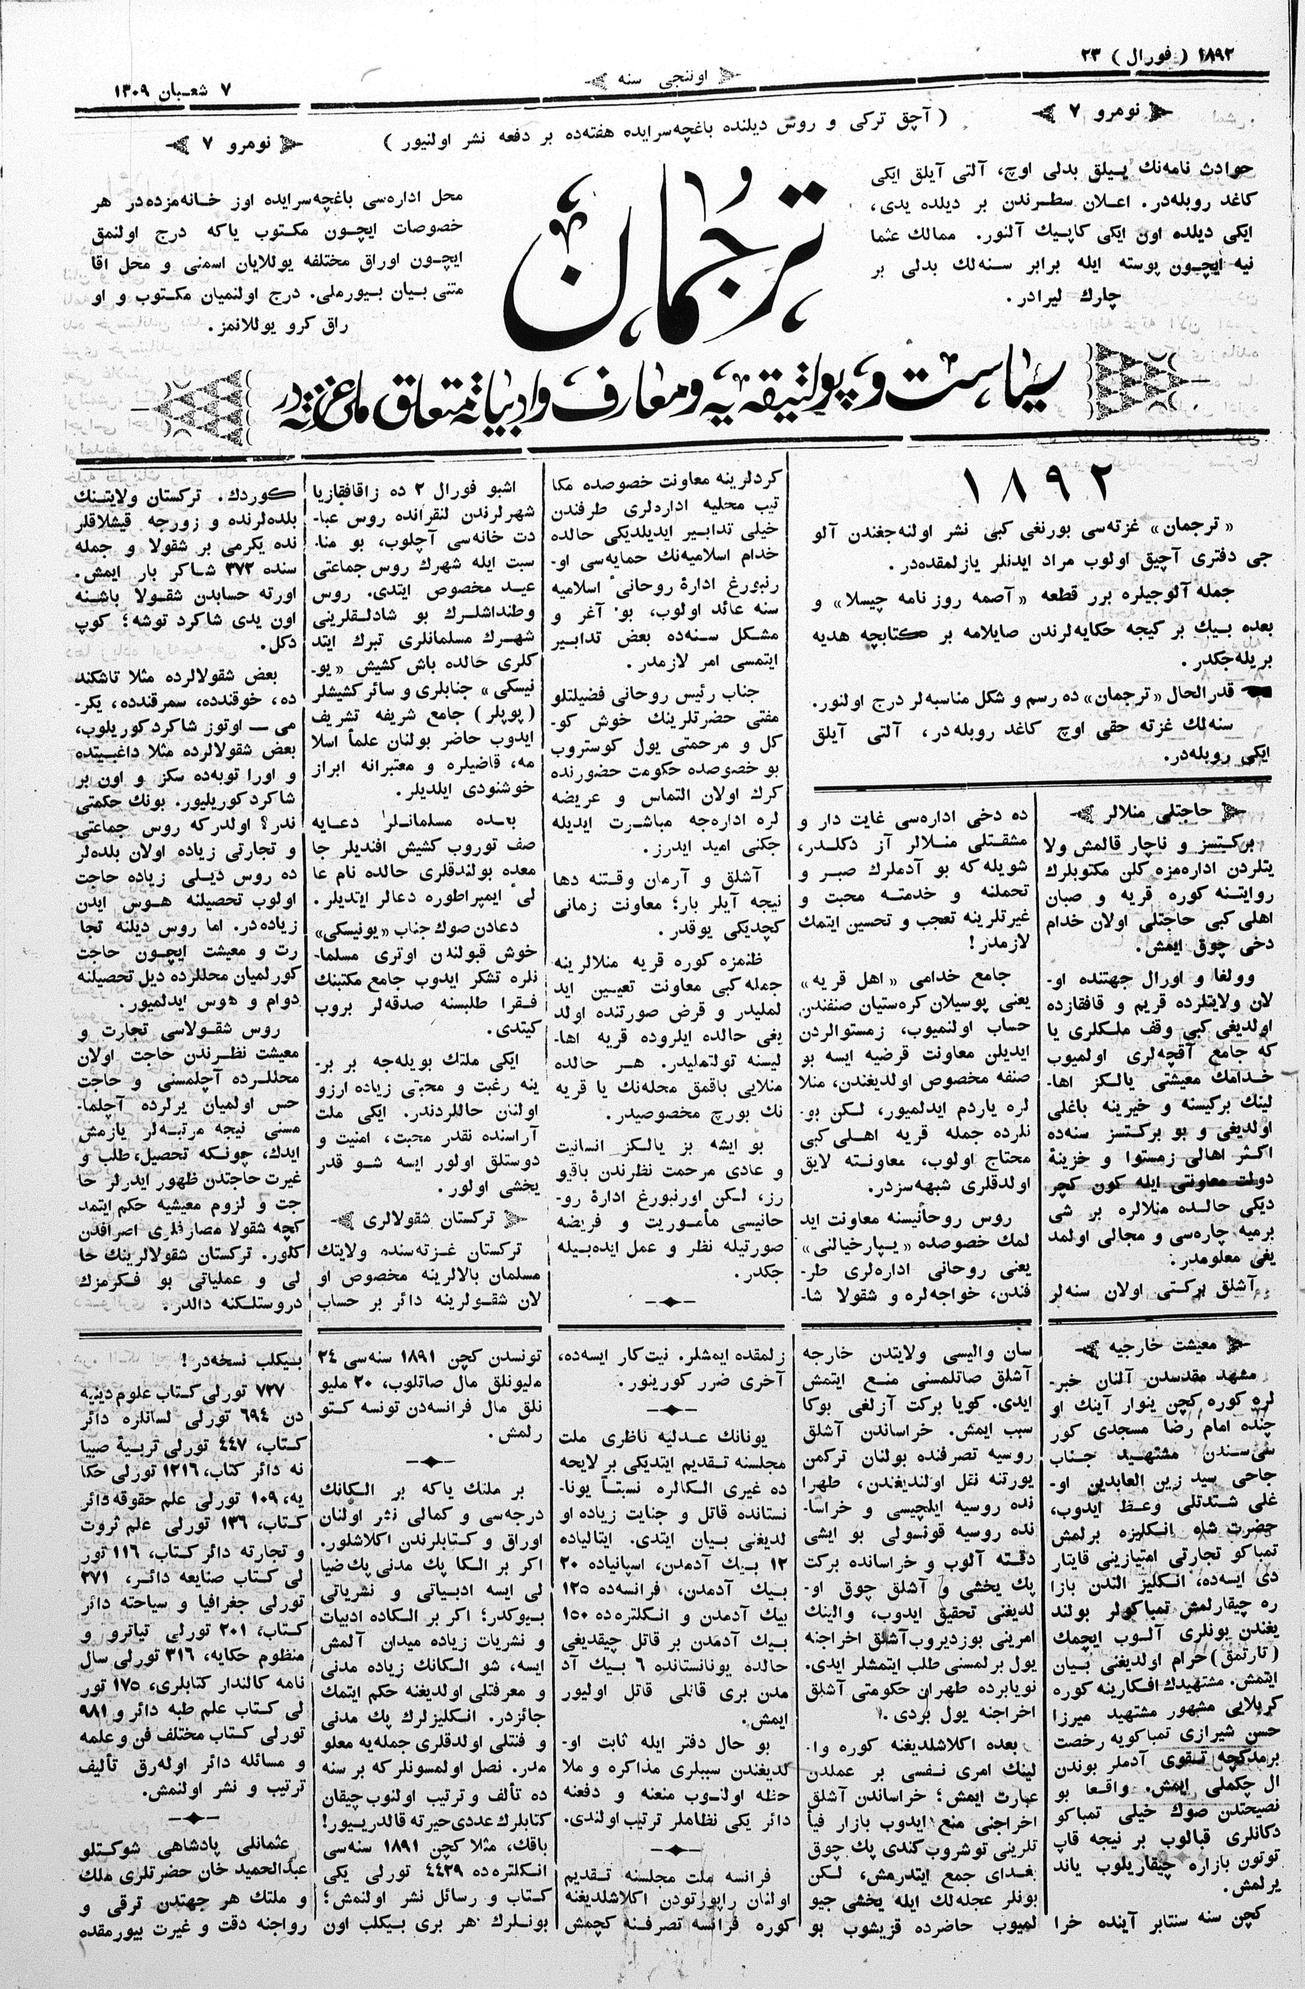 ١٨٩٢ ( فورال ) ٢٣
اوننجی سنه
٧ شعبان ١٣٠٩
نومرو ٧
( آچق ترکی و روس دیلنده باغچه‌سرایده هفته‌ده بر دفعه نشر اولنیور )
نومرو ٧
حوادث نامه‌نك ییلق بدلی اوچ، آلتی آیلق ایکی
کاغد روبله‌در. اعلان سطرندن بر دیلده یدی،
ایکی دیلده اون ایکی کاپیك آلنور. ممالك عثما
نیه ایچون پوسته ایله برابر سنه‌لك بدلی بر
چارك لیرادر.
ترجمان
محل اداره‌سی باغچه‌سرایده اوز خانه‌مزده‌در هر
خصوصات ایچون مکتوب یاکه درج اولنمق
ایچون اوراق مختلفه یوللایان اسمنی و محل اقا
متنی بیان بیورملی. درج اولنمیان مکتوب و او
راق کرو یوللانمز.
سیاست و پولتیقه‌یه و معارف و ادبیاته متعلق ملی غزته‌در
١٨٩٢
«ترجمان» غزته‌سی بورنغی کبی نشر اولنه‌جغندن آلو
جی دفتری آچیق اولوب مراد ایدنلر یازلمقده‌در.
جمله آلوجیلره برر قطعه «آصمه روزنامه چیسلا» و
بعده بیك بر کیجه حکایه‌لرندن صایلامه بر کتابچه هدیه
بریله‌جکدر.
قدر الحال «ترجمان» ده رسم و شکل مناسبه‌لر درج اولنور.
سنه‌لك غزته حقی اوچ کاغد روبله‌در، آلتی آیلق
ایکی روبله‌در.
حاجتلی منلالر
برکتسز و ناچار قالمش ولا
یتلردن اداره‌مزه کلن مکتوبلرك
روایتنه کوره قریه و صبان
اهلی کبی حاجتلی اولان خدام
دخی چوق ایمش.
وولغا و اورال جهتنده او-
لان ولایتلرده قریم و قافقازده
اولدیغی کبی وقف ملکلری یا
که جامع آقچه‌لری اولمیوب
خدامك معیشتی یالکز اها-
لینك برکیسنه و خیرینه باغلی
اولدیغی و بو برکتسز سنه‌ده
اکثر اهالی زمستوا و خزینهٔ
دولت معاونتی ایله کون کچر
دیکی حالده منلالره بر شی
برمیه چاره‌سی و مجالی اولمد
یغی معلومدر.
آشلق برکتی اولان سنه‌لر
ده دخی اداره‌سی غایت دار و
مشقتلی منلالر آز دکلدر،
شویله که بو آدملرك صبر و
تحملنه و خدمتنه محبت و
غیرتلرینه تعجب و تحسین ایتمك
لازمدر!
جامع خدامی «اهل قریه»
یعنی پوسیلان کره‌ستیان صنفندن
حساب اولنمیوب، زمستوالردن
ایدیلن معاونت قرضیه ایسه بو
صنفه مخصوص اولدیغندن، منلا
لره یاردم ایدلمیور، لکن بو-
نلرده جمله قریه اهلی کبی
محتاج اولوب، معاونته لایق
اولدقلری شبهه‌سزدر.
روس روحانیسنه معاونت اید
لمك خصوصده «یپارخیالنی»
یعنی روحانی اداره‌لری طر-
فندن، خواجه‌لره و شقولا شا-
کردلرینه معاونت خصوصده مکا
تیب محلیه اداره‌لری طرفندن
خیلی تدابیر ایدیلدیکی حالده
خدام اسلامیه‌نك حمایه‌سی او-
رنبورغ ادارهٔ روحانیٔ اسلامیه
سنه عائد اولوب، بو آغر و
مشکل سنه‌ده بعض تدابیر
ایتمسی امر لازمدر.
جناب رئیس روحانی فضیلتلو
مفتی حضرتلرینك خوش کو-
کل و مرحمتی یول کوستروب
بو خصوصده حکومت حضورنده
کرك اولان التماس و عریضه
لره اداره‌جه مباشرت ایدیله
جکنی امید ایدرز.
آشلق و آرمان وقتنه دها
نیجه آیلر بار؛ معاونت زمانی
کچدیکی یوقدر.
ظنمزه کوره قریه منلالرینه
جمله کبی معاونت تعیین اید
لملیدر و قرض صورتنده اولد
یغی حالده ایلروده قریه اها-
لیسنه تولتملیدر. هر حالده
منلایی باقمق محله‌نك یا قریه
نك بورچ مخصوصیدر.
بو ایشه بز یالکز انسانیت
و عادی مرحمت نظرندن باقیو
رز، لکن اورنبورغ ادارهٔ رو-
حانیسی مأموریت و فریضه
صورتیله نظر و عمل ایده‌بیله
جکدر.
اشبو فورال ٢ ده زاقافقازیا
شهرلرندن لنقرانده روس عبا-
دت خانه‌سی آچلوب، بو منا-
سبت ایله شهرك روس جماعتی
عید مخصوص ایتدی. روس
وطنداشلرك بو شادلقلرینی
شهرك مسلمانلری تبرك ایتد
کلری حالده باش کشیش «یو-
نیسکی» جنابلری و سائر کشیشلر
(پوپلر) جامع شریفه تشریف
ایدوب حاضر بولنان علمأ اسلا
مه، قاضیلره و معتبرانه ابراز
خوشنودی ایلدیلر.
بعده مسلمانلر دعایه
صف توروب کشیش افندیلر جا
معده بولندقلری حالده نام عا
لیٔ ایمپراطوره دعالر ایتدیلر.
دعادن صوك جناب «یونیسکی»
خوش قبولندن اوتری مسلما-
نلره تشکر ایدوب جامع مکتبنك
فقرا طلبسنه صدقه‌لر بروب
کیتدی.
ایکی ملتك بویله‌جه بر بر-
ینه رغبت و محبتی زیاده ارزو
اولنان حاللردندر. ایکی ملت
آراسنده نقدر محبت، امنیت و
دوستلق اولور ایسه شو قدر
یخشی اولور.
ترکستان شقولالری
ترکستان غزته‌سنده ولایتك
مسلمان بالالرینه مخصوص او
لان شقولرینه دائر بر حساب
کوردك. ترکستان ولایتنك
بلده‌لرنده و زورجه قیشلاقلر
نده یکرمی بر شقولا و جمله
سنده ٣٧٢ شاکر بار ایمش.
اورته حسابدن شقولا باشنه
اون یدی شاکرد توشه؛ کوپ
دکل.
بعض شقولالرده مثلا تاشکند
ده، خوقندده، سمرقندده، یکر-
می — اوتوز شاکرد کوریلوب،
بعض شقولالرده مثلا داغبیتده
و اورا توبه‌ده سکز و اون بر
شاکرد کوریلیور. بونك حکمتی
ندر؟ اولدرکه روس جماعتی
و تجارتی زیاده اولان بلده‌لر
ده روس دیلی زیاده حاجت
اولوب تحصیلنه هوس ایدن
زیاده‌در. اما روس دیلنه تجا
رت و معیشت ایچون حاجت
کورلمیان محللرده دیل تحصیلنه
دوام و هوس ایدلمیور.
روس شقولاسی تجارت و
معیشت نظرندن حاجت اولان
محللرده آچلمسنی و حاجت
حس اولمیان یرلرده آچلما-
مسنی نیجه مرتبه‌لر یازمش
ایدك، چونکه تحصیل، طلب و
غیرت حاجتدن ظهور ایدرلر حا
جت و لزوم معیشیه حکم ایتمد
کچه شقولا مصارفلری اصرافدن
کلور. ترکستان شقولالرینك حا
لی و عملیاتی بو فکرمزك
دروستلکنه دالدر.
معیشت خارجیه
مشهد مقدسدن آلنان خبر-
لره کوره کچن ینوار آینك او
چنده امام رضا مسجدی کور
سی‌سندن مشتهید جناب
حاجی سید زین العابدین او-
غلی شدتلی وعظ ایدوب،
حضرت شاه انکلیزه برلمش
تمباکو تجارتی امتیازینی قایتار
دی ایسه‌ده، انکلیز الندن بازا
ره چیقارلمش تمباکولر بولند
یغندن یونلری آلوب ایچمك
(تارتمق) حرام اولدیغنی بیان
ایتمش. مشتهیدك افکارینه کوره
کربلایی مشهور مشتهید میرزا
حسن شیرازی تمباکویه رخصت
برمدکچه تقوی آدملر بوندن
ال چکملی ایمش. واقعا بو
نصیحتدن صوك خیلی تمباکو
دکانلری قپالوب بر نیجه قاپ
توتون بازاره چیقاریلوب یاند
یرلمش.
کچن سنه سنتابر آینده خرا
سان والیسی ولایتدن خارجه
آشلق صاتلمسنی منع ایتمش
ایدی. کویا برکت آزلغی بوکا
سبب ایمش. خراساندن آشلق
روسیه تصرفنده بولنان ترکمن
یورتنه نقل اولندیغندن، طهرا
نده روسیه ایلچیسی و خراسا-
نده روسیه قونسولی بو ایشی
دقته آلوب و خراسانده برکت
پك یخشی و آشلق چوق او-
لدیغنی تحقیق ایدوب، والینك
امرینی بوزدیروب آشلق اخراجنه
یول برلمسنی طلب ایتمشلر ایدی.
نویابرده طهران حکومتی آشلق
اخراجنه یول بردی.
بعده اکلاشلدیغنه کوره وا.
لینك امری نفسی بر عملدن
عبارت ایمش؛ خراساندن آشلق
اخراجنی منع ایدوب بازار فیأ
تلرینی توشروب کندی پك چوق
بغدای جمع ایتدرمش، لکن
بونلر عجله‌لك ایله یخشی جیو
لمیوب حاضرده قزیشوب بو
زلمقده ایمشلر. نیت کار ایسه‌ده،
آخری ضرر کورینور.
یونانك عدلیه ناظری ملت
مجلسنه تقدیم ایتدیکی بر لایحه
ده غیری الکالره نسبتاً یونا-
نستانده قاتل و جنایت زیاده او
لدیغنی بیان ایتدی. ایتالیاده
١٢ بیك آدمدن، اسپانیاده ٢٠
بیك آدمدن، فرانسه‌ده ١٢٥
بیك آدمدن و انکلتره‌ده ١٥٠
بیك آدمدن بر قاتل چیقدیغی
حالده یونانستانده ٦ بیك آد
مدن بری قانلی قاتل اولیور
ایمش.
بو حال دفتر ایله ثابت او-
لدیغندن سببلری مذاکره و ملا
حظه اولنوب منعنه و دفعنه
دائر یکی نظاملر ترتیب اولندی.
فرانسه ملت مجلسنه تقدیم
اولنان راپورتودن اکلاشلدیغنه
کوره فرانسه تصرفنه کچمش
تونسدن کچن ١٨٩١ سنه‌سی ٢٤
ملیونلق مال صاتلوب، ٢٠ ملیو
نلق مال فرانسه‌دن تونسه کتو
رلمش.
بر ملتك یاکه بر الکانك
درجه‌سی و کمالی نشر اولنان
اوراق و کتابلرندن اکلاشلور.
اکر بر الکا پك مدنی پك ضیا
لی ایسه ادبیاتی و نشریاتی
بیوکدر؛ اکر بر الکاده ادبیات
و نشریات زیاده میدان آلمش
ایسه، شو الکانك زیاده مدنی
و معرفتلی اولدیغنه حکم ایتمك
جائزدر. انکلیزلرك پك مدنی
و فنتلی اولدقلری جمله‌یه معلو
مدر. نصل اولمسونلر که بر سنه
ده تألف و ترتیب اولنوب چیقان
کتابلرك عددی حیرته قالدریور!
باقك، مثلا کچن ١٨٩١ سنه‌سی
انکلتره‌ده ٤٤٢٩ تورلی یکی
کتاب و رسائل نشر اولنمش؛
بونلرك هر بری بیکلب اون
بیکلب نسخه‌در!
٧٢٧ تورلی کتاب علوم دینیه
دن ٦٩٤ تورلی لسانلره دائر
کتاب، ٤٤٧ تورلی تربیهٔ صبیا
نه دائر کتاب، ١٢١٦ تورلی حکا
یه، ١٠٩ تورلی علم حقوقه دائر
کتاب، ١٣٦ تورلی علم ثروت
و تجارته دائر کتاب، ١١٦ تور
لی کتاب صنایعه دائر، ٢٧١
تورلی جغرافیا و سیاحته دائر
کتاب، ٢٠١ تورلی تیاترو و
منظوم حکایه، ٣١٦ تورلی سال
نامه کالندار کتابلری، ١٧٥ تور
لی کتاب علم طبه دائر و ٩٨١
تورلی کتاب مختلف فن و علمه
و مسائله دائر اوله‌رق تألیف
ترتیب و نشر اولنمش.
عثمانلی پادشاهی شوکتلو
عبدالحمید خان حضرتلری ملك
و ملتك هر جهتدن ترقی و
رواجنه دقت و غیرت بیورمقده